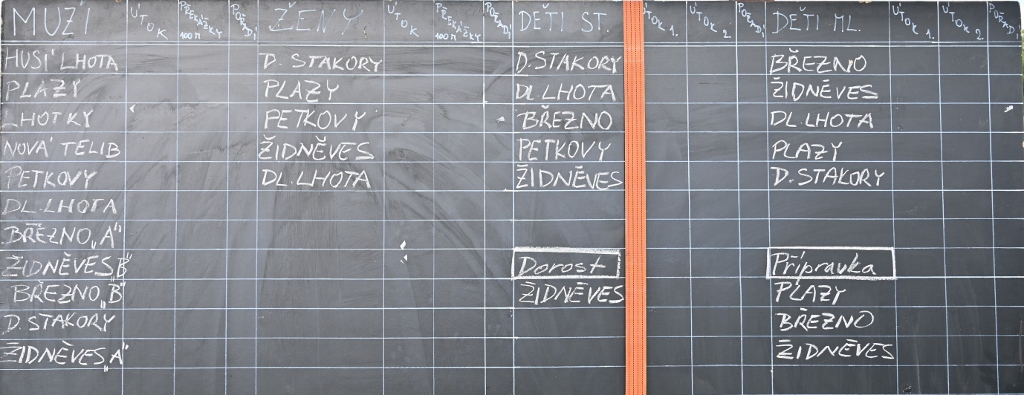 MUŽI ÚTOK PŘEKÁŽKY 100 m POŘADÍ ŽENY ÚTOK PŘEKÁŽKY 100 m POŘADÍ DĚTI ST. ÚTOK 1. ÚTOK 2 POŘADÍ DĚTI ML. ÚTOK 1. ÚTOK 2. POŘADÍ
HUSÍ LHOTA D. STAKORY D.STAKORY BŘEZNO
PLAZY PLAZY DL LHOTA ŽIDNĚVES
LHOTKY PETKOVY BŘEZNO DL.LHOTA
NOVÁ TELIB ŽIDNĚVES PETKOVY PLAZY
PETKOVY DL.LHOTA ŽIDNĚVES D.STAKORY
DL.LHOTA
BŘEZNO„A"
ŽIDNĚVES„B" Dorost Přípravka
BŘEZNO„B" ŽIDNĚVES PLAZY
D.STAKORY BŘEZNO
ŽIDNĚVES„A" ŽIDNĚVES